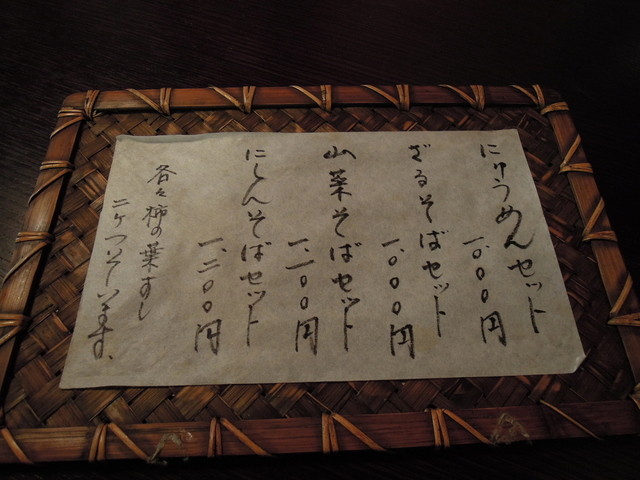 にゅうめんセット
一、〇〇〇円
ざるそばセット
一、〇〇〇円
山菜そばセット
一、一〇〇円
にしんそばセット
一、二〇〇円
各々柿の葉すし
二ケつもございます。